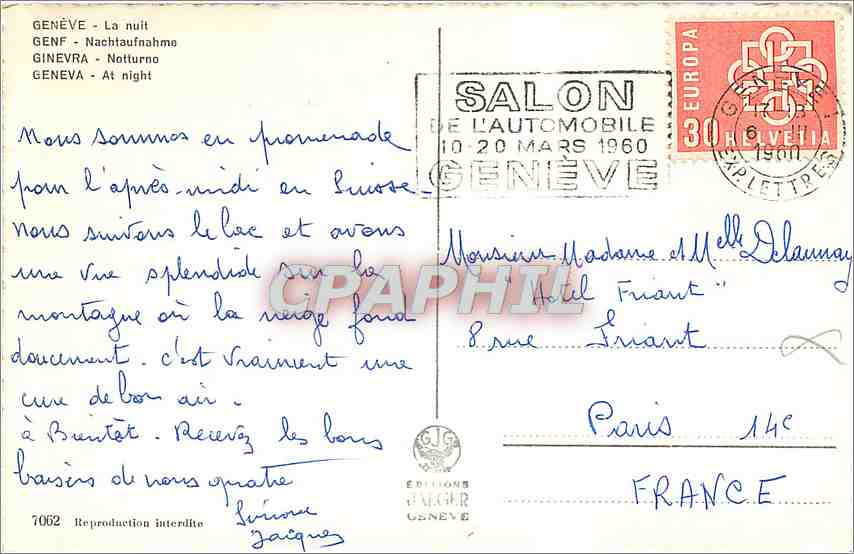 GENÈVE - La nuit
GENF - Nachtaufnahme
GINEVRA - Notturno
GENEVA - At night
Nous sommes en promenade
pour l'après-midi en Suisse -
Nous suivons le lac et avons
une vue splendide sur la
montagne où la neige fond
doucement. c'est vraiment une
cure de bon air.
à Bientôt. Recevez les bons
baisers de nous quatre
Simone
Jacques
7062 Reproduction interdite
SALON
DE L'AUTOMOBILE
10-20 MARS 1960
GENÈVE
EUROPA
30 HELVETIA
GENÈVE 1
6. III
1960
EXP. LETTRES
Monsieur Madame et Melle Delaunay
"Hotel Friant"
8 rue Friant
Paris 14e
FRANCE
GJG
EDITIONS
JAEGER
GENEVE
CPAPHIL